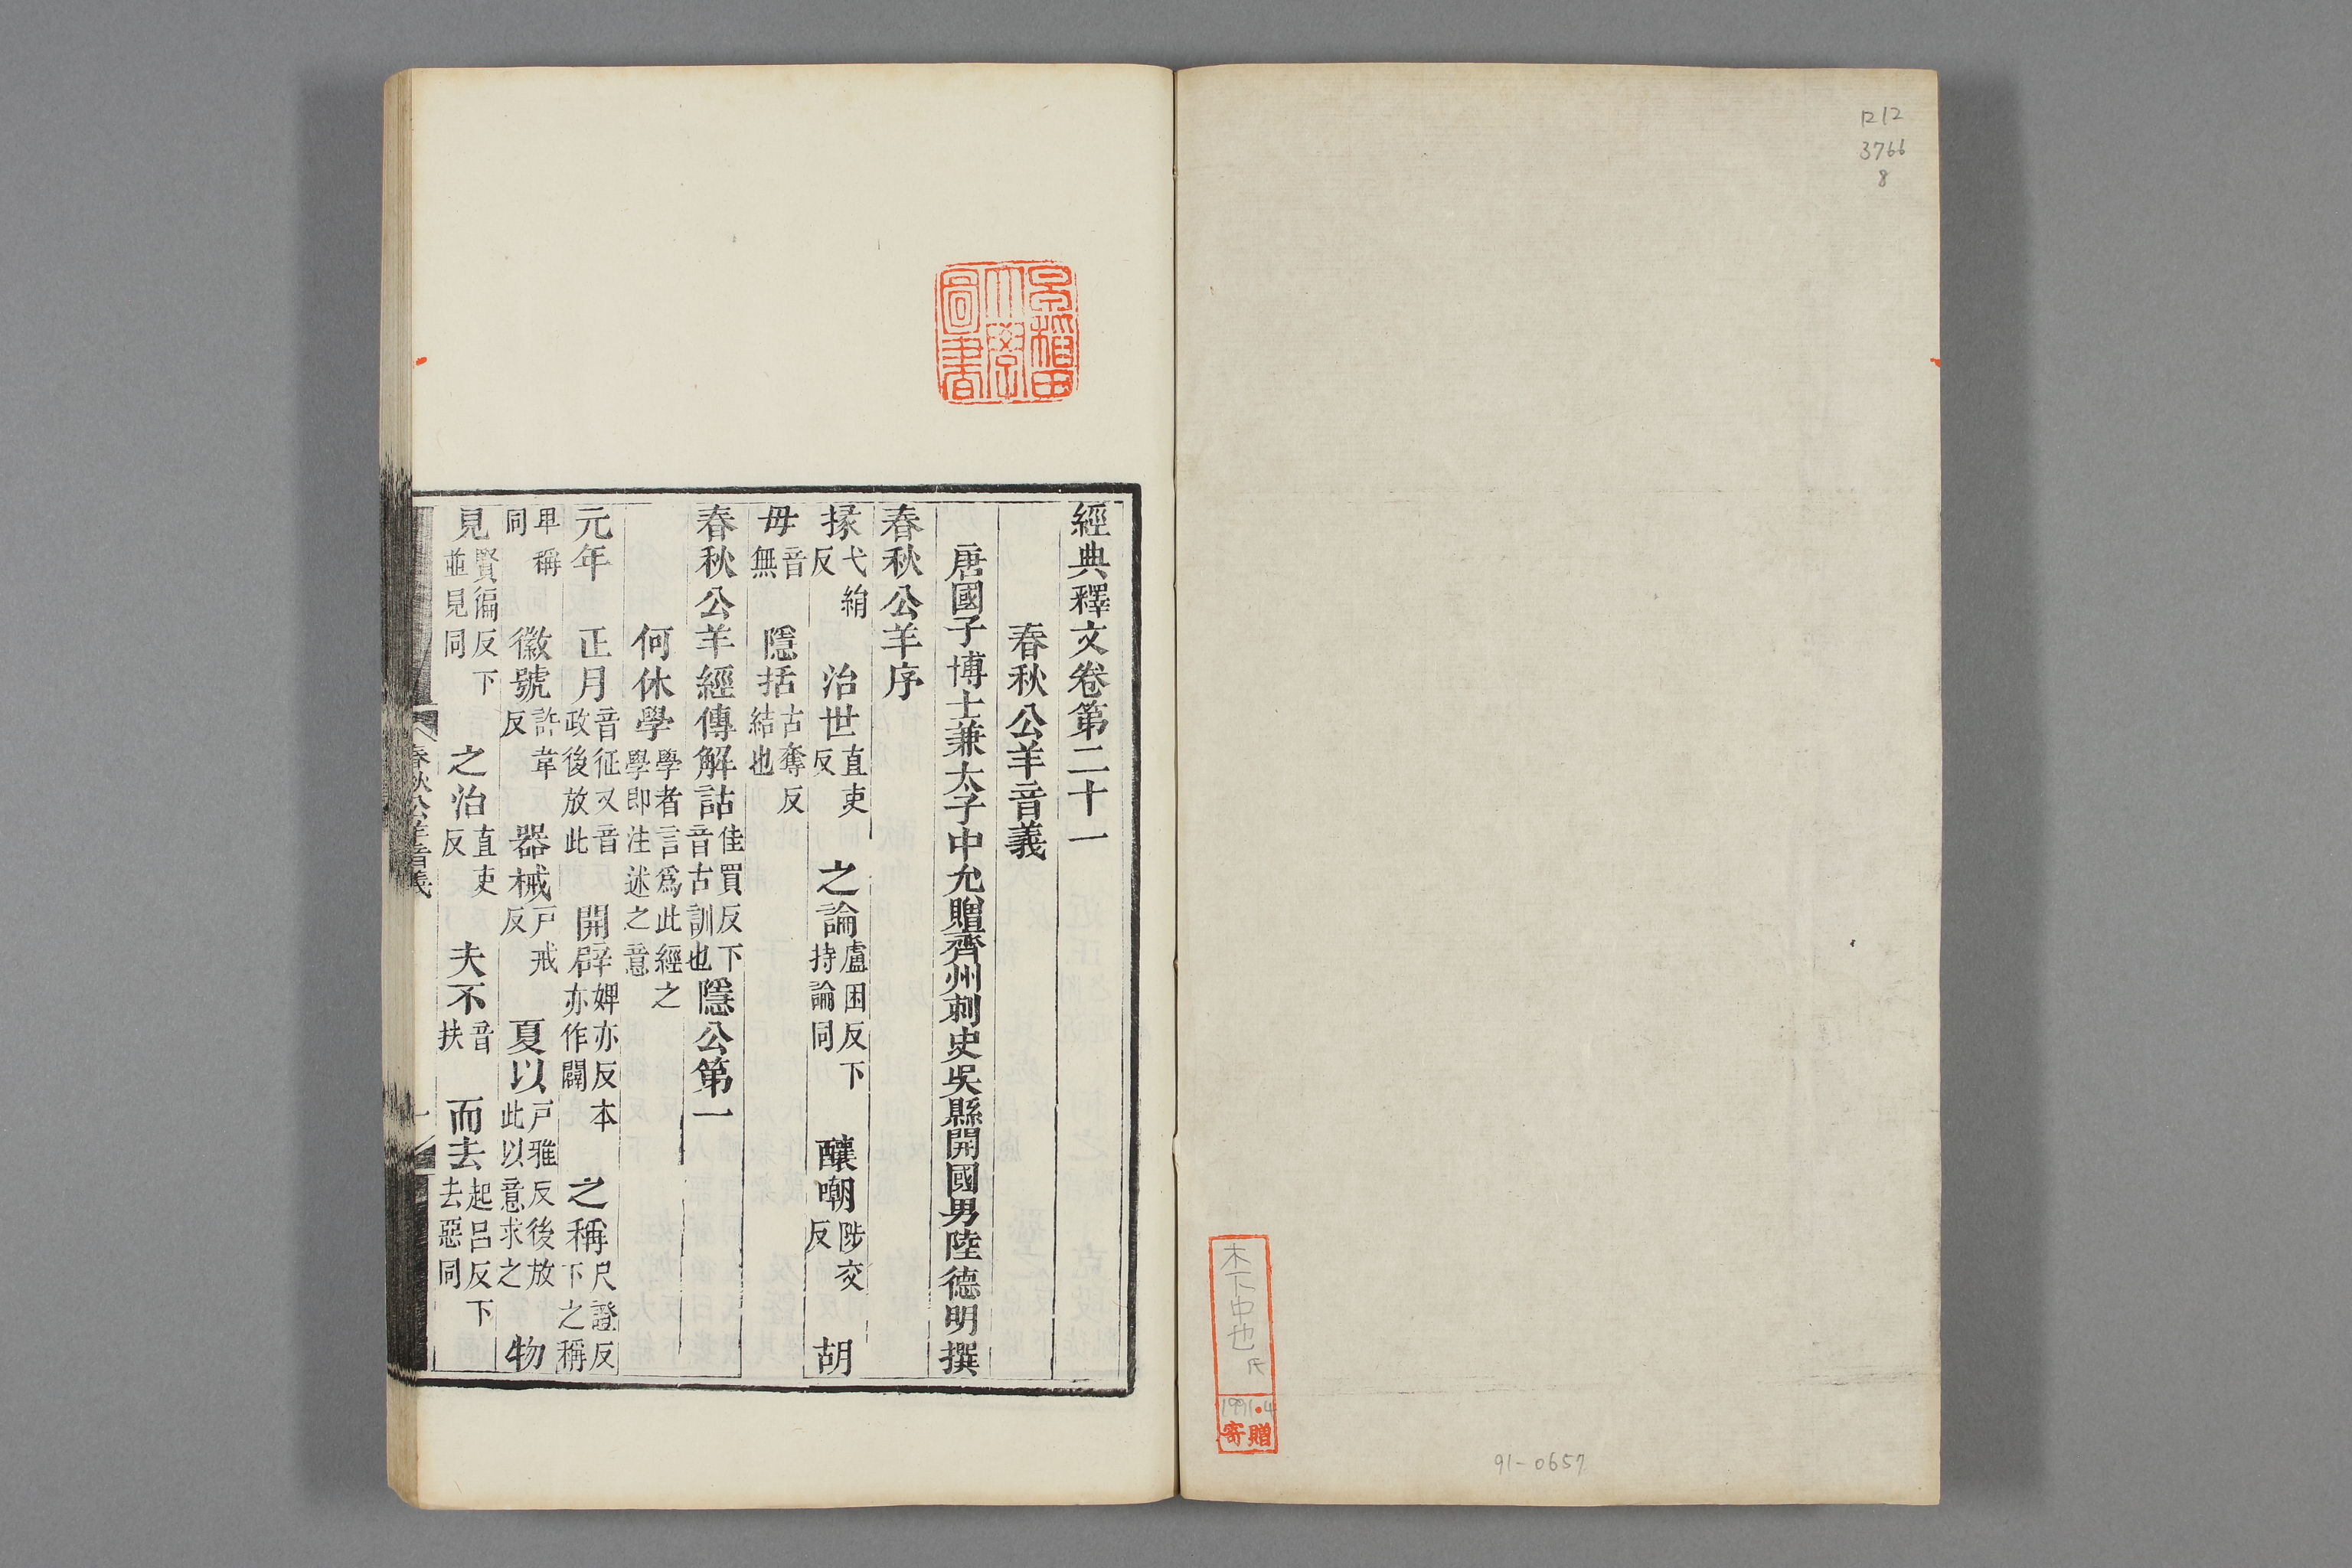 ロ12
3766
8
木下中也氏
1991・4
寄贈
91-0657
早稲田大學圖書
經典釋文卷第二十一
春秋公羊音義
唐國子博士兼太子中允贈齊州刺史吳縣開國男陸德明撰
春秋公羊序
掾弋絹反 治世直吏反 之論盧困反下持論同 釀嘲陟交反 胡
毋音無 隱括古奪反結也
春秋公羊經傳解詁佳買反下音古訓也隱公第一
何休學學者言爲此經之學即注述之意
元年 正月音征又音政後放此 開辟婢亦反本亦作闢 之稱尺證反下之稱
甲稱同 徽號許韋反 器械戶戒反 夏以戶雅反後放此以意求之 物
見賢徧反下並見同 之治直吏反 夫不音扶 而去起呂反下去惡同
春秋公羊音義
一